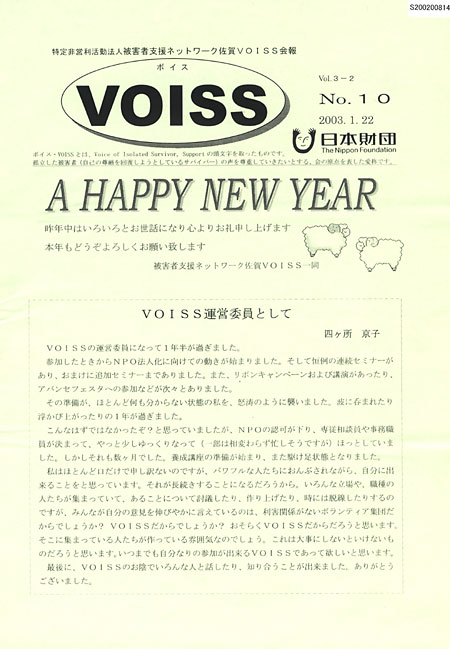 S200200814
特定非営利活動法人被害者支援ネットワーク佐賀VOISS会報
ボイス
VOISS
Vol.3-2
No.10
2003.1.22
日本財団
The Nippon Foundation
ボイス・VOISSとは、Voice of Isolated Survivor, Supportの頭文字を取ったものです。
孤立した被害者(自己の尊厳を回復しようとしているサバイバー)の声を尊重していきたいとする、会の原点を表した愛称です。
A HAPPY NEW YEAR
昨年中はいろいろとお世話になり心よりお礼申し上げます
本年もどうぞよろしくお願い致します
被害者支援ネットワーク佐賀VOISS一同
VOISS運営委員として
四ヶ所 京子
VOISSの運営委員になって1年半が過ぎました。
参加したときからNPO法人化に向けての動きが始まりました。そして恒例の連続セミナーが
あり、おまけに追加セミナーまでありました。また、リボンキャンペーンおよび講演があったり、
アバンセフェスタへの参加などが次々とありました。
その準備が、ほとんど何も分からない状態の私を、怒涛のように襲いました。波に呑まれたり
浮かび上がったりの1年が過ぎました。
こんなはずではなかったぞ?と思っていましたが、NPOの認可が下り、専従相談員や事務職
員が決まって、やっと少しゆっくりなって(一部は相変わらず忙しそうですが)ほっとしていま
した。しかしそれも数ヶ月でした。養成講座の準備が始まり、また駆け足状態となりました。
私はほとんど口だけで申し訳ないのですが、パワフルな人たちにおんぶされながら、自分に出
来ることをと思っています。それが長続きすることになるだろうから。いろんな立場や、職種の
人たちが集まっていて、あることについて討議したり、作り上げたり、時には脱線したりするの
ですが、みんなが自分の意見を伸びやかに言えているのは、利害関係がないボランティア集団だ
からでしょうか? VOISSだからでしょうか? おそらくVOISSだからだろうと思います。
そこに集まっている人たちが作っている雰囲気なのでしょう。これは大事にしないといけないも
のだろうと思います。いつまでも自分なりの参加が出来るVOISSであって欲しいと思います。
最後に、VOISSのお陰でいろんな人と話したり、知り合うことが出来ました。ありがとう
ございました。